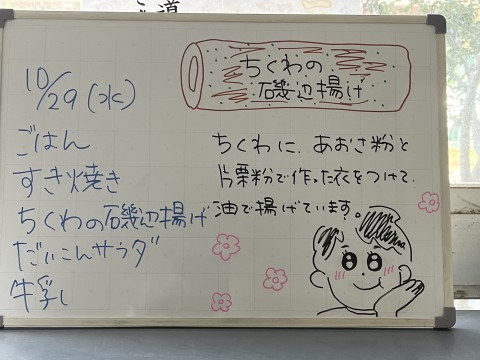 道
10/29(水)
ごはん
すき焼き
ちくわの磯辺揚げ
だいこんサラダ
牛乳
ちくわの
磯辺揚げ
ちくわに、あおさ粉と
片栗粉で作った衣をつけて、
油で揚げています。